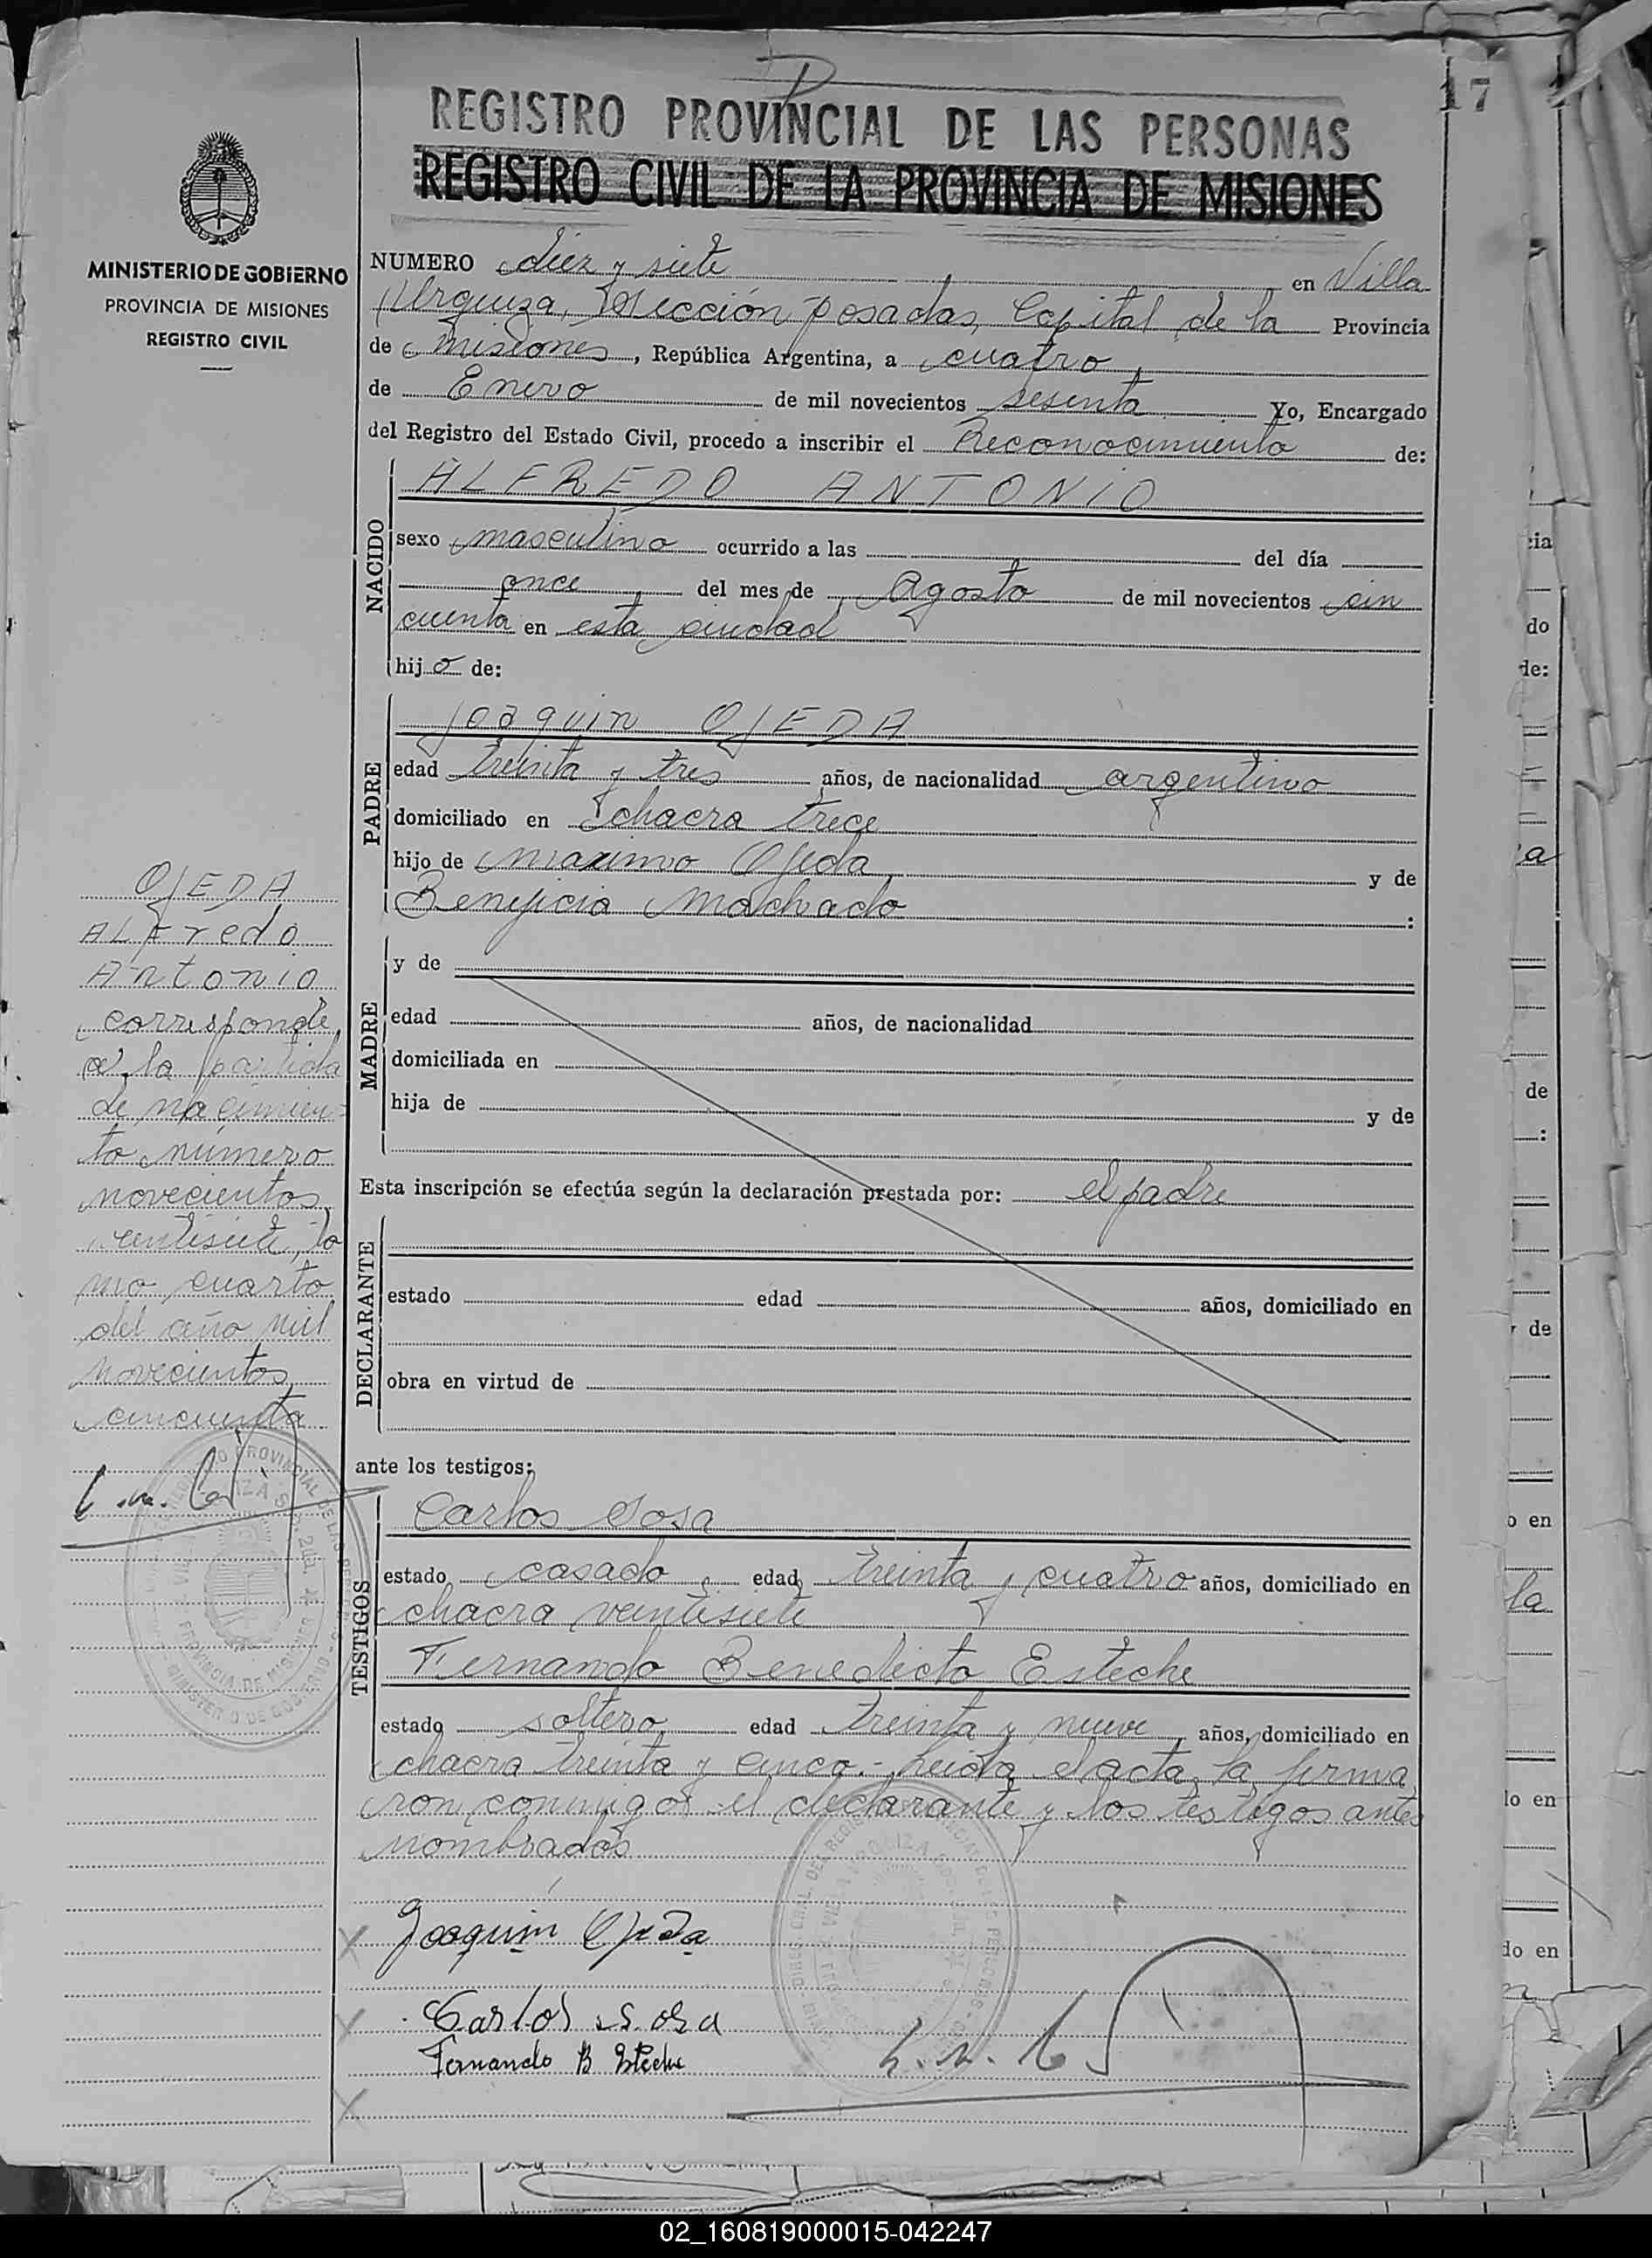 17
REGISTRO PROVINCIAL DE LAS PERSONAS
REGISTRO CIVIL DE LA PROVINCIA DE MISIONES
MINISTERIO DE GOBIERNO
PROVINCIA DE MISIONES
REGISTRO CIVIL
NUMERO diez y siete en Villa
Urquiza, Sección Posadas, Capital de la Provincia
de Misiones, República Argentina, a cuatro
de Enero de mil novecientos sesenta Yo, Encargado
del Registro del Estado Civil, procedo a inscribir el Reconocimiento de:
NACIDO
ALFREDO ANTONIO
sexo masculino ocurrido a las del día
once del mes de Agosto de mil novecientos cin
cuenta en esta ciudad
hijo de:
PADRE
Joaquin OJEDA
edad treinta y tres años, de nacionalidad argentino
domiciliado en chacra trece
hijo de Maximo Ojeda y de
Benificia Machado :
MADRE
y de
edad años, de nacionalidad
domiciliada en
hija de y de
Esta inscripción se efectúa según la declaración prestada por: el padre
DECLARANTE
estado edad años, domiciliado en
obra en virtud de
ante los testigos:
TESTIGOS
Carlos Sosa
estado casado, edad treinta y cuatro años, domiciliado en
chacra veintisiete
Fernando Benedicto Esteche
estado soltero, edad treinta y nueve, años, domiciliado en
chacra treinta y cinco.- Leida el acta, la firma
ron conmigo el declarante y los testigos antes
nombrados
Joaquin Ojeda
Carlos Sosa
Fernando B Esteche
OJEDA
ALFredo
Antonio
corresponde
a la partida
de nacimien-
to número
novecientos
ventisiete, to
mo cuarto
del año mil
novecientos
cincuenta
02_160819000015-042247